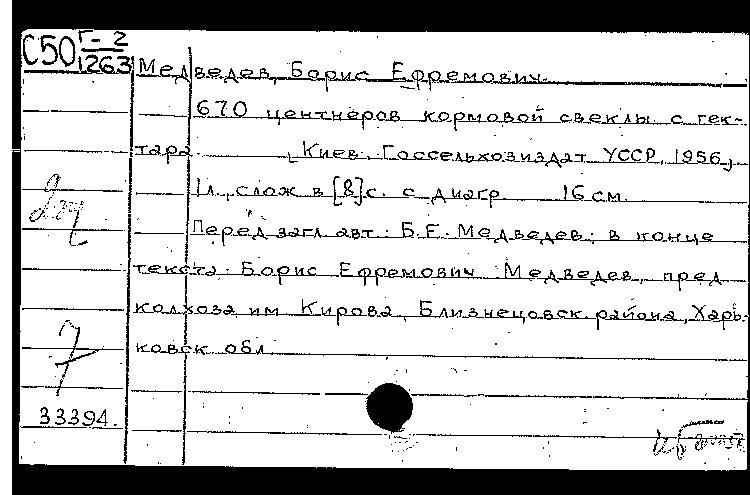 С50 Г-2
1263
Медведев, Борис Ефремович.
670 центнеров кормовой свеклы с гек-
тара. Киев, Госсельхозиздат УССР, 1956,
1л., слож в [8] с. с диагр. 16 см.
Перед загл. авт.: Б.Е. Медведев; в конце
текста: Борис Ефремович Медведев, пред
колхоза им Кирова, Близнецовск. района, Харь-
ковск обл.
7
33394.